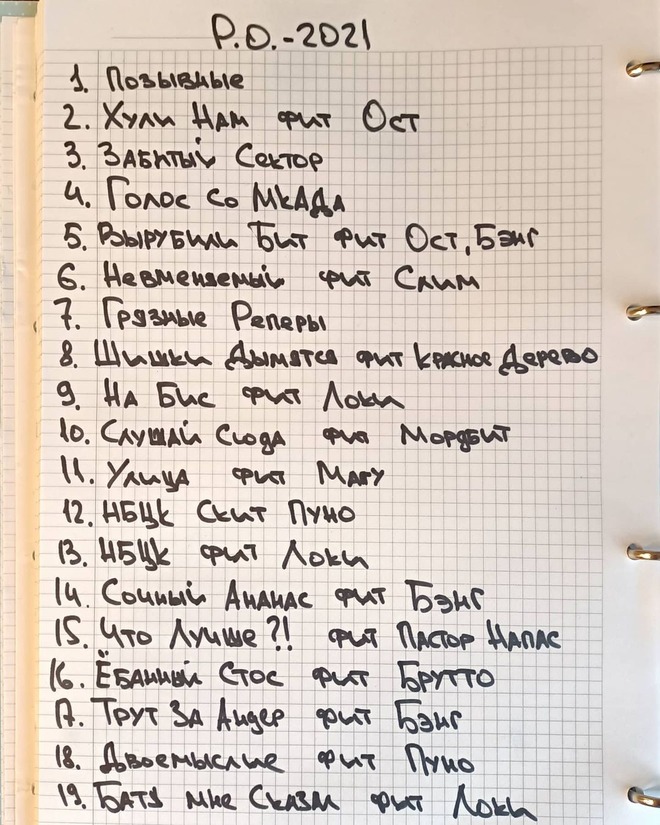 Р.О.-2021
1. Позывные
2. Хули Нам фит Ост
3. Забитый Сектор
4. Голос со МКАДа
5. Вырубили Бит фит Ост, Бэнг
6. Невменяемый фит Слим
7. Грязные Реперы
8. Шишки Дымятся фит Красное Дерево
9. На Бис фит Локи
10. Слушай Сюда фит Мордбит
11. Улица фит Магу
12. НБЦК Скит Пуно
13. НБЦК фит Локи
14. Сочный Ананас фит Бэнг
15. Что Лучше?! фит Пастор Напас
16. Ёбанный Стос фит Брутто
17. Трут За Андер фит Бэнг
18. Двоемыслие фит Пуно
19. Батя мне Сказал фит Локи